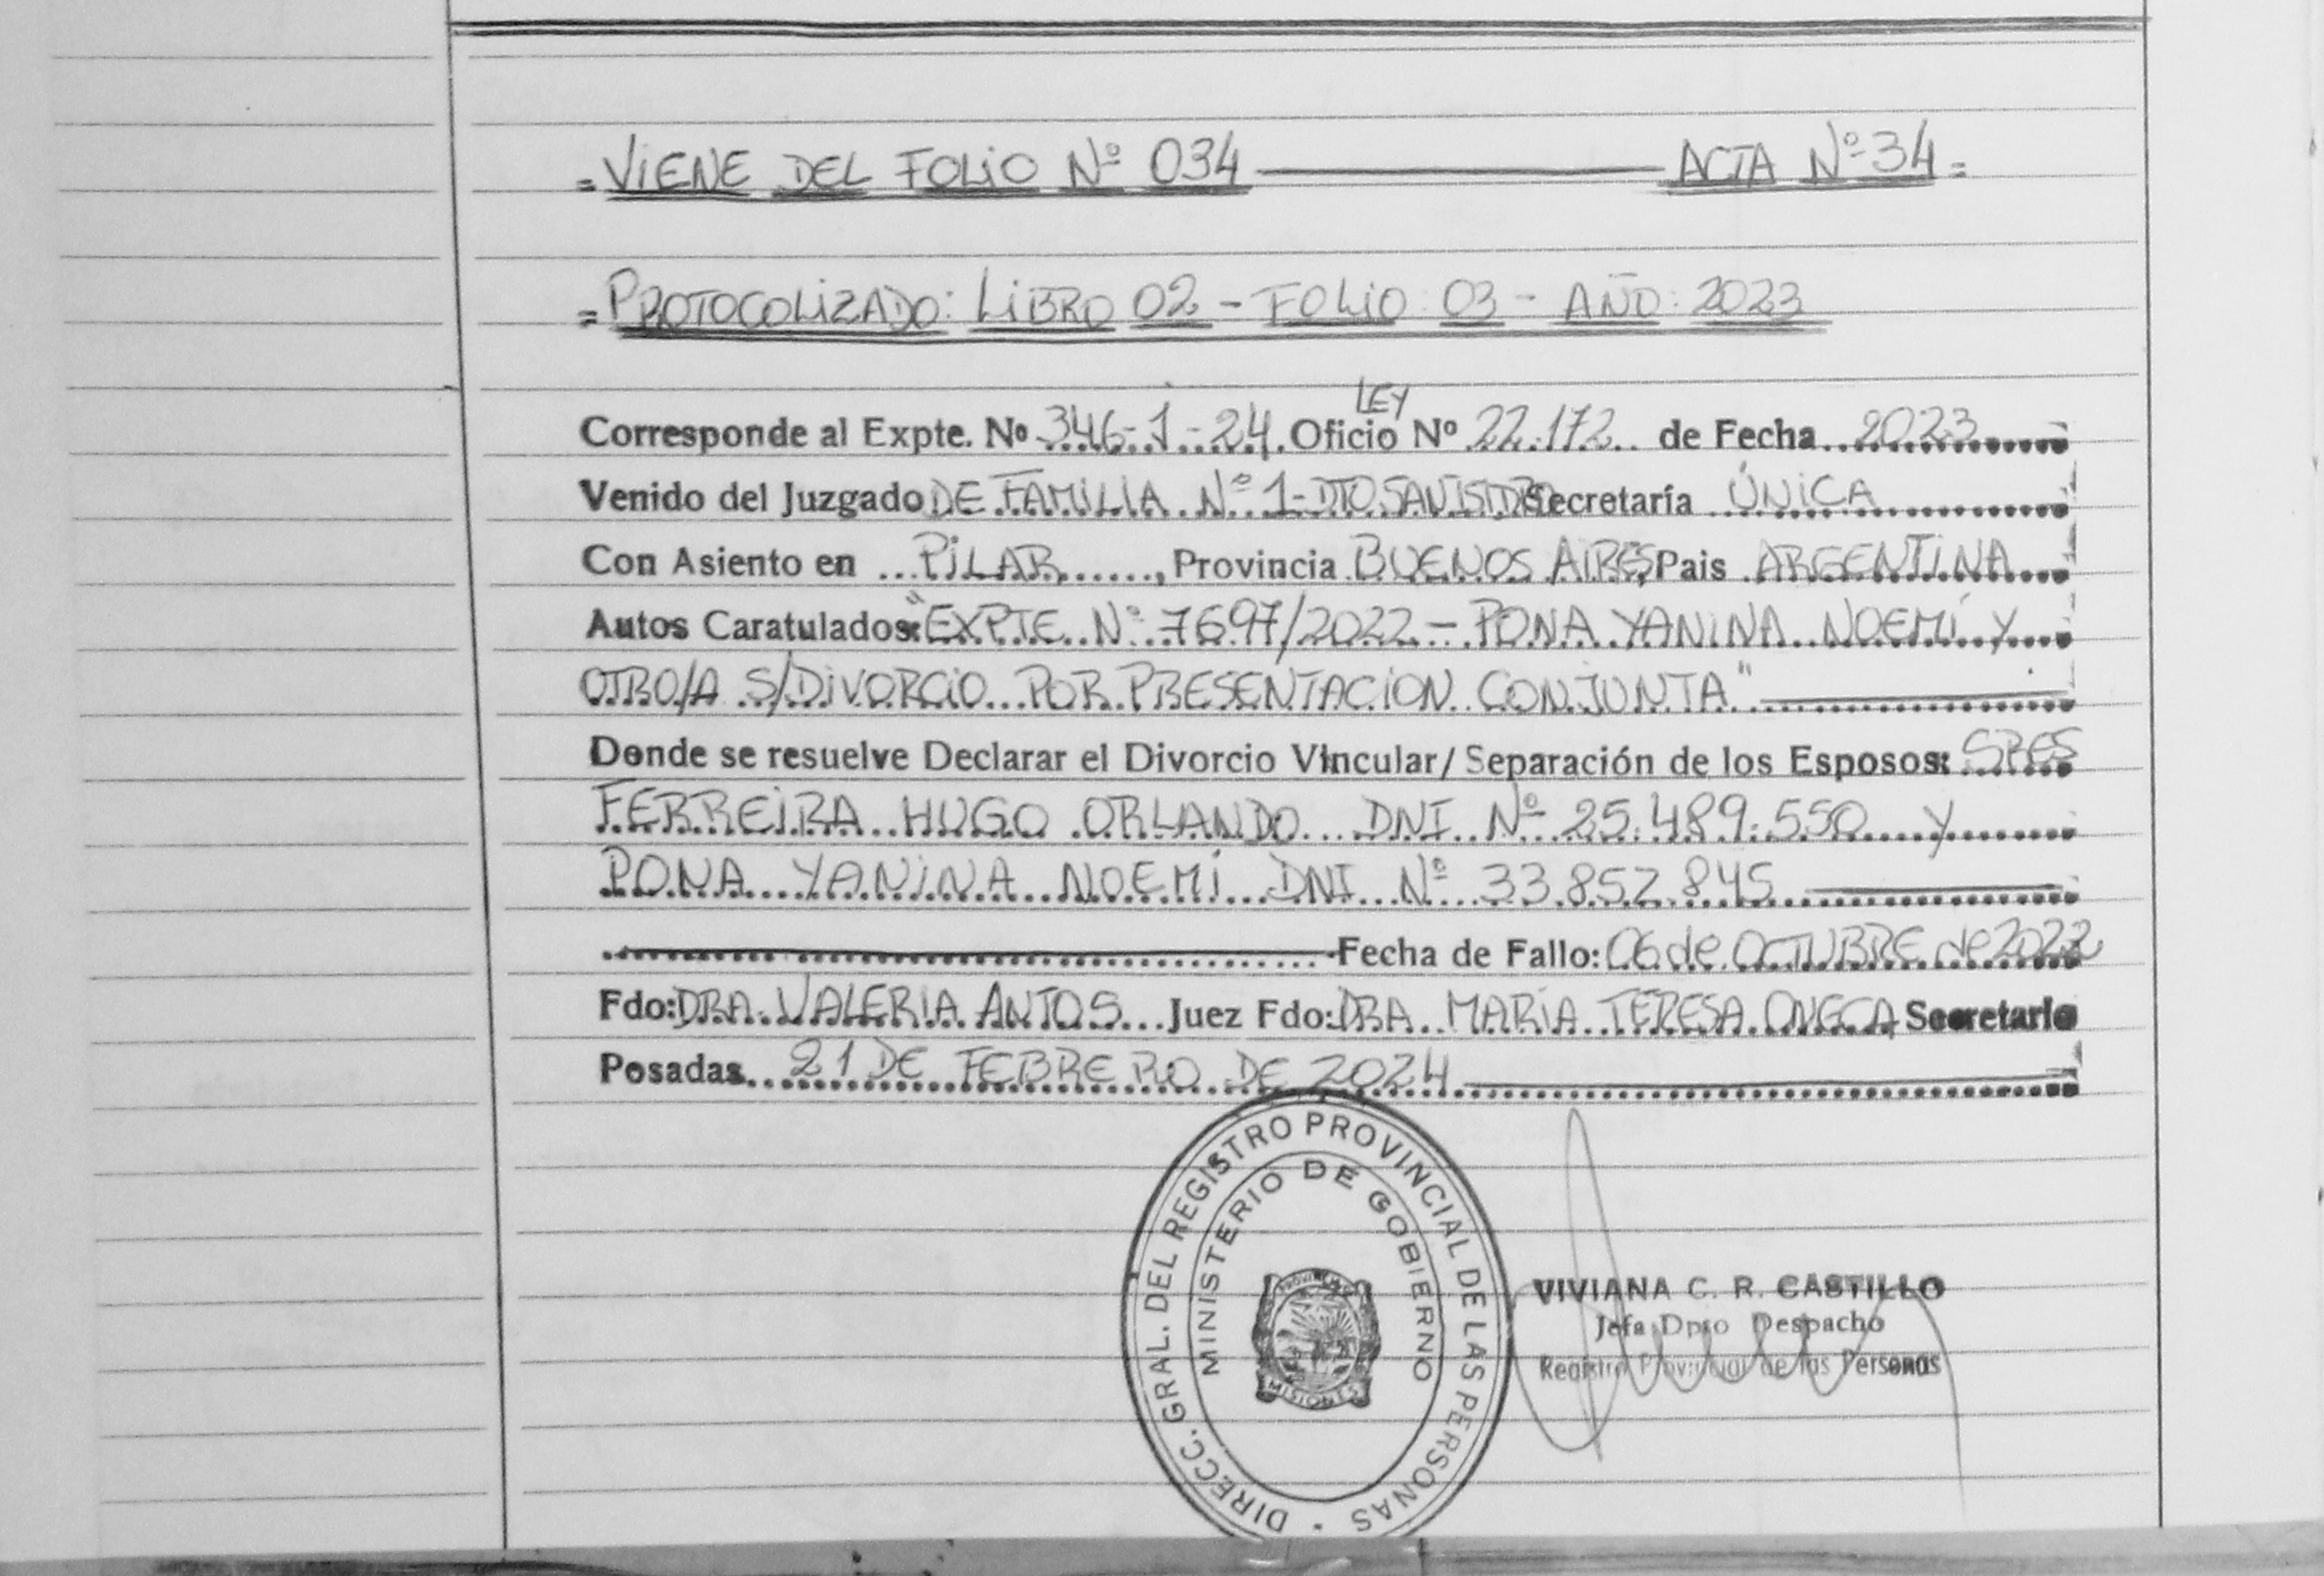 = VIENE DEL FOLIO Nº 034 ——— ACTA Nº 34 =
= PROTOCOLIZADO: LIBRO 02 - FOLIO: 03 - AÑO: 2023
LEY
Corresponde al Expte. Nº 346-1-24. Oficio Nº 22.172 de Fecha 2023
Venido del Juzgado DE FAMILIA Nº 1-DTO SAN ISIDRO Secretaría ÚNICA
Con Asiento en PILAR, Provincia BUENOS AIRES, Pais ARGENTINA
Autos Caratulados: "EXPTE Nº 7697/2022 - PONA YANINA NOEMÍ Y
OTRO/A S/DIVORCIO POR PRESENTACION CONJUNTA"
Donde se resuelve Declarar el Divorcio Vincular/ Separación de los Esposos: SRES
FERREIRA HUGO ORLANDO DNI Nº 25.489.550 Y
PONA YANINA NOEMÍ DNI Nº 33.852.845
Fecha de Fallo: 06 de OCTUBRE de 2022
Fdo: DRA. VALERIA ANTOS Juez Fdo: DRA MARIA TERESA Secretario
Posadas 21 DE FEBRERO DE 2024
DIRECC. GRAL. DEL REGISTRO PROVINCIAL DE LAS PERSONAS
MINISTERIO DE GOBIERNO
MISIONES
VIVIANA C. R. CASTILLO
Jefa Dpto Despacho
Registro Provincial de las Personas